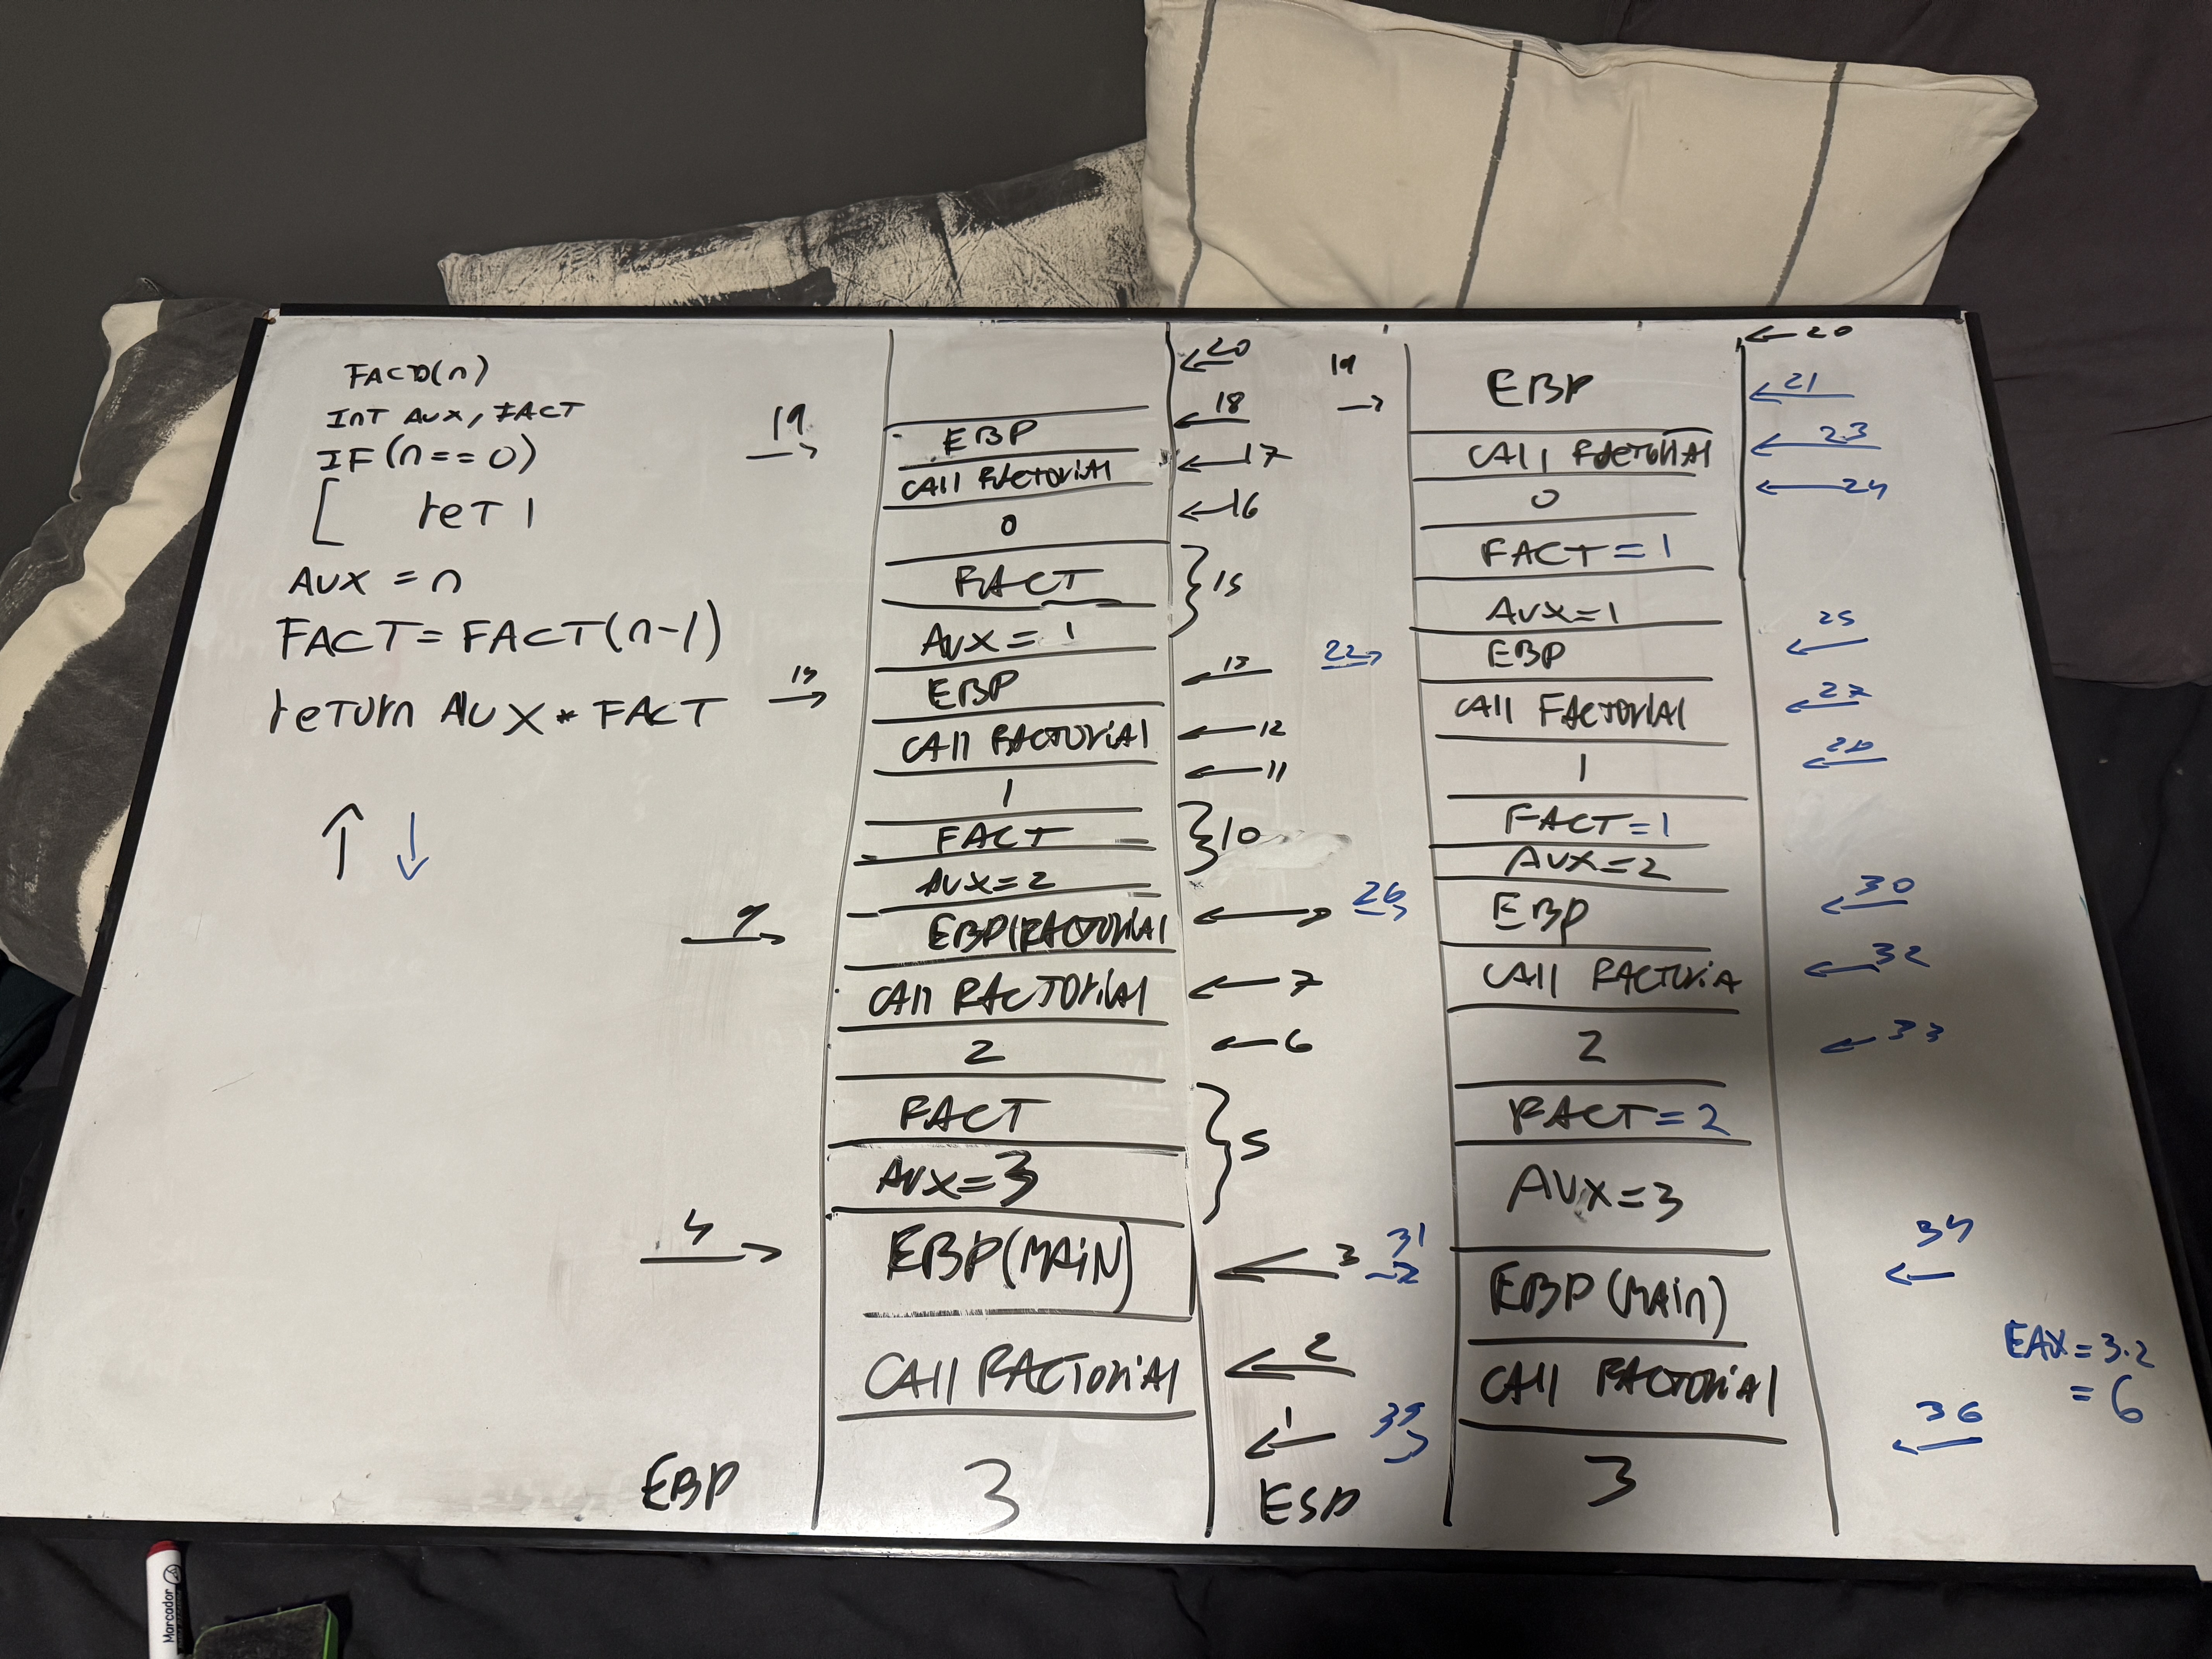 FACTO(n)
INT AUX, FACT
IF(n==0)
ret 1
AUX = n
FACT=FACT(n-1)
return AUX * FACT
19
EBP
Call FACTORIAL
0
FACT
AUX= 1
EBP
Call FACTORIAL
1
FACT
AUX=2
9
EBP(FACTORIAL
Call FACTORIAL
2
FACT
AUX=3
4
EBP(MAIN)
Call FACTORIAL
EBP
3
20
18
17
16
15
12
11
10
7
6
5
3
2
1
ESP
19
22
26
31
EBP
Call FACTORIAL
0
FACT=1
AUX=1
EBP
Call FACTORIAL
1
FACT=1
AUX=2
EBP
Call FACTORIA
2
FACT=2
AUX=3
EBP(MAIN)
Call FACTORIAL
3
20
21
23
24
25
27
30
32
33
34
36
EAX=3.2
=6
Marcador